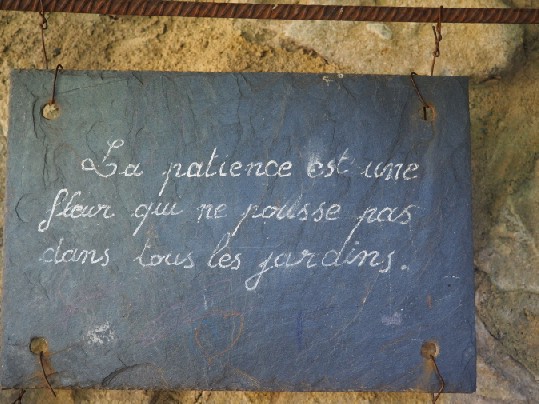 La patience est une
fleur qui ne pousse pas
dans tous les jardins.